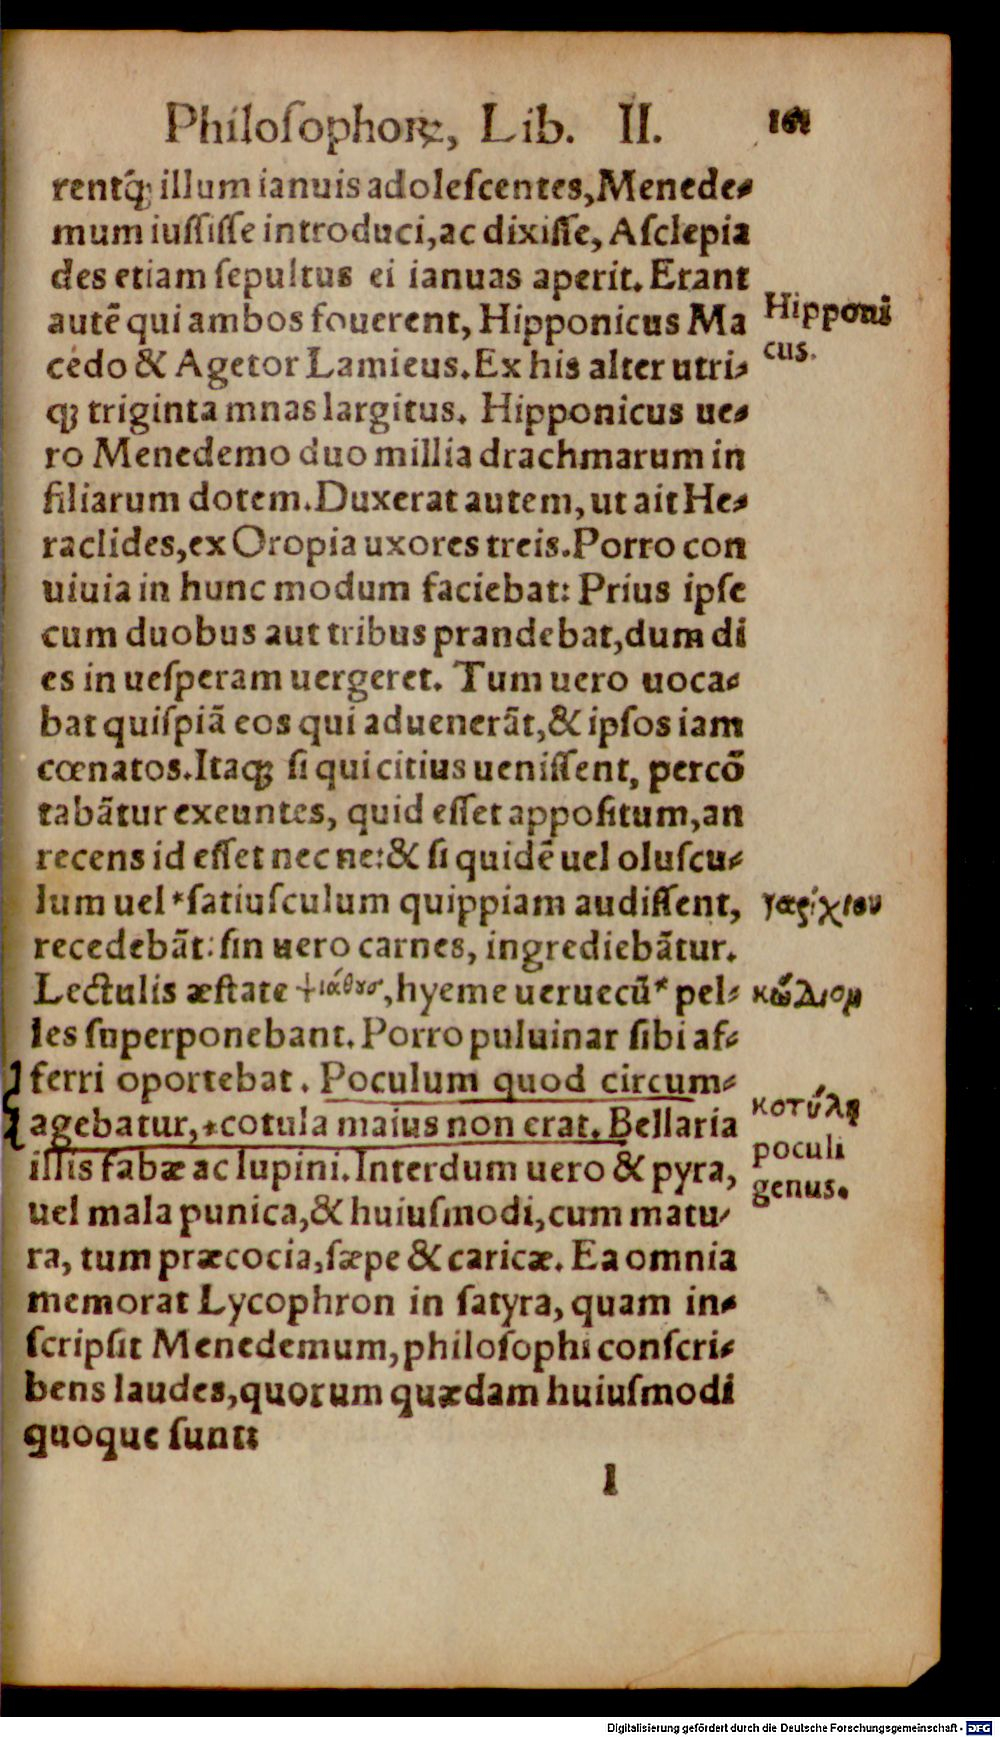 Philoſophoꝝ, Lib. II.
rentq́ꝫ illum ianuis adoleſcentes, Menede⸗
mum iuſſiſſe introduci, ac dixiſſe, Aſclepia
des etiam ſepultus ei ianuas aperit. Erant
autē qui ambos fouerent, Hipponicus Ma
Hipponi
cedo & Agetor Lamieus. Ex his alter utri⸗
cus.
qꝫ triginta mnas largitus. Hipponicus ue⸗
ro Menedemo duo millia drachmarum in
filiarum dotem. Duxerat autem, ut ait He⸗
raclides, ex Oropia uxores treis. Porro con
uiuia in hunc modum faciebat: Prius ipſe
cum duobus aut tribus prandebat, dum di
es in ueſperam uergeret. Tum uero uoca⸗
bat quiſpiā eos qui aduenerāt, & ipſos iam
cœnatos. Itaqꝫ ſi qui citius ueniſſent, percō
tabātur exeuntes, quid eſſet appoſitum, an
recens id eſſet nec ne: & ſi quidē uel oluſcu⸗
lum uel *ſatiuſculum quippiam audiſſent,
ταρίχιου
recedebāt: ſin uero carnes, ingrediebātur.
Lectulis æſtate ψιάθους, hyeme ueruecū* pel⸗
κώδιομ
les ſuperponebant. Porro puluinar ſibi af⸗
ferri oportebat. Poculum quod circum⸗
agebatur, *cotula maius non erat. Bellaria
κοτύλη
poculi
illis fabæ ac lupini. Interdum uero & pyra,
genus.
uel mala punica, & huiuſmodi, cum matu⸗
ra, tum præcocia, ſæpe & caricæ. Ea omnia
memorat Lycophron in ſatyra, quam in⸗
ſcripſit Menedemum, philoſophi conſcri⸗
bens laudes, quorum quædam huiuſmodi
quoque ſunt:
l
Digitalisierung gefördert durch die Deutsche Forschungsgemeinschaft - DFG